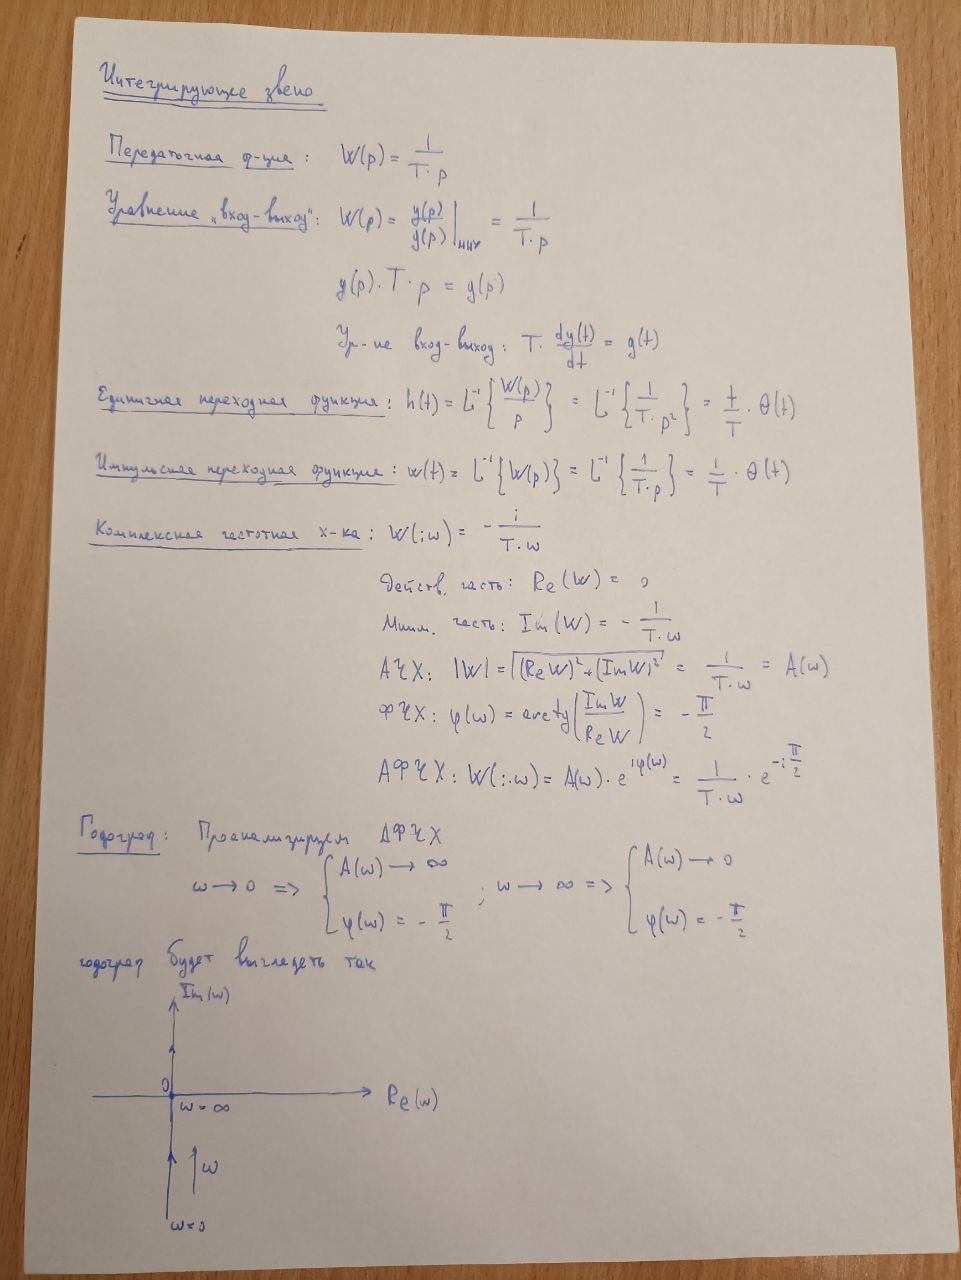 Интегрирующее звено
Передаточная ф-ция: W(p) = 1/(T·p)
Уравнение "вход-выход": W(p) = y(p)/g(p) |ннн = 1/(T·p)
y(p)·T·p = g(p)
Ур-ие вход-выход: T·dy(t)/dt = g(t)
Единичная переходная функция: h(t) = L⁻¹{W(p)/p} = L⁻¹{1/(T·p²)} = t/T · θ(t)
Импульсная переходная функция: w(t) = L⁻¹{W(p)} = L⁻¹{1/(T·p)} = 1/T · θ(t)
Комплексная частотная х-ка: W(iω) = - i/(T·ω)
Действ. часть: Re(W) = 0
Мним. часть: Im(W) = - 1/(T·ω)
АЧХ: |W| = √((Re W)² + (Im W)²) = 1/(T·ω) = A(ω)
ФЧХ: φ(ω) = arctg(Im W/Re W) = - π/2
АФЧХ: W(i·ω) = A(ω)·e^(iφ(ω)) = 1/(T·ω) · e^(-i π/2)
Годограф: Проанализируем АФЧХ
ω → 0 => { A(ω) → ∞ ; φ(ω) = - π/2 ; ω → ∞ => { A(ω) → 0 ; φ(ω) = - π/2
годограф будет выглядеть так
Im(ω)
0
ω = ∞
Re(ω)
ω
ω=0